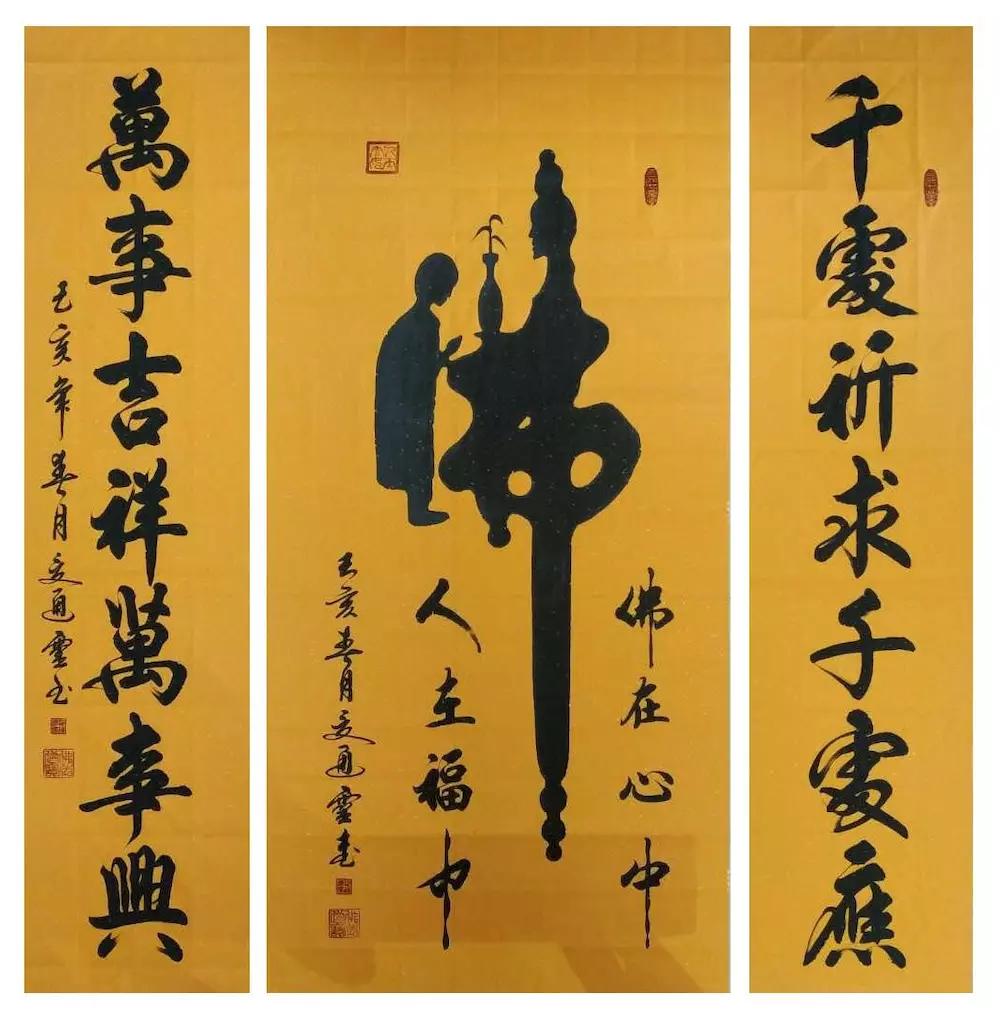 千處祈求千處應
佛
佛在心中
人在福中
己亥春月 通靈畫
萬事吉祥萬事興
己亥年春月 通靈书